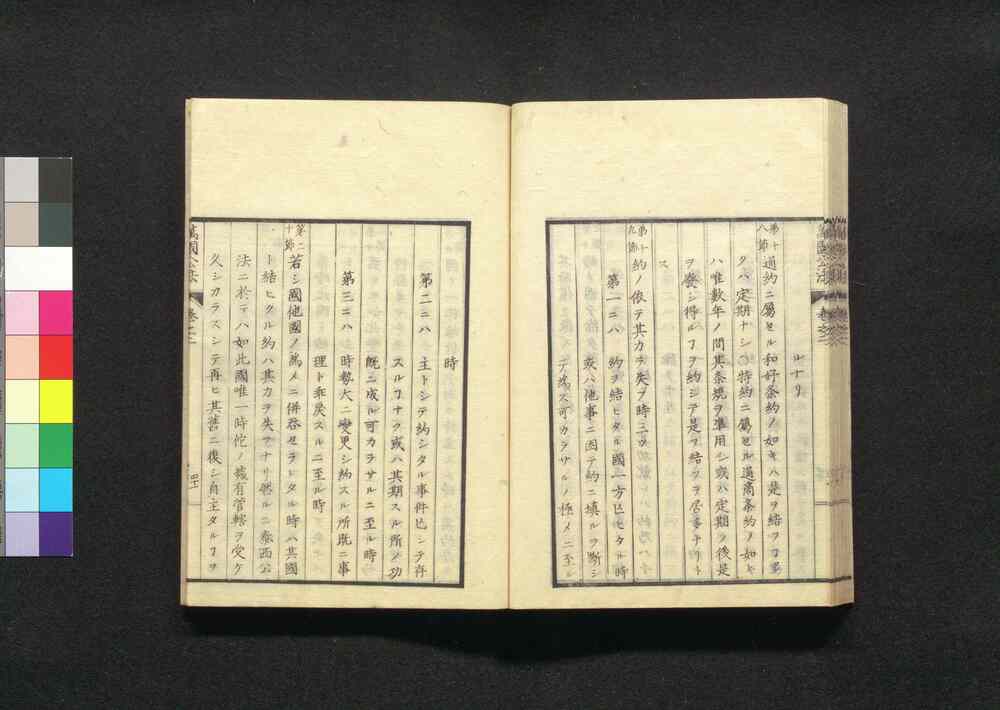 ルナリ
第十八節 通約ニ屬セル和好条約ノ如キハ是ヲ結フヿ多
クハ定期ナシ〇特約ニ屬セル通商条約ノ如キ
ハ惟數年ノ間其条規ヲ準用シ或ハ定期ノ後是
ヲ癈シ得ルヿヲ約シテ是ヲ結フヲ居多ナリト
ス
第十九節 約ノ依テ其力ヲ失フ時三ツ
第一ニハ 約ヲ結ヒタル國一方已ヒタル時
或ハ他事ニ因テ約ニ填ルヲ斷シ
テ為ス可カラサルノ極メニ至ル
時
第二ニハ 主トシテ約シタル事件已シテ存
スルヿナク或ハ其期スル所ノ功
既ニ成ル可カラサルニ至ル時
第三ニハ 時勢大ニ變更シ約スル所既ニ事
理ト乖戻スルニ至ル時
第二十節 若シ國他國ノ為メニ併吞セラレタル時ハ其國
ト結ヒタル約ハ其力ヲ失フナリ然ルニ泰西公
法ニ於テハ如此國唯一時佗ノ據有管轄ヲ受ケ
久シカラスシテ再ヒ其舊ニ復シ自主タルヿヲ
萬國公法 卷之二